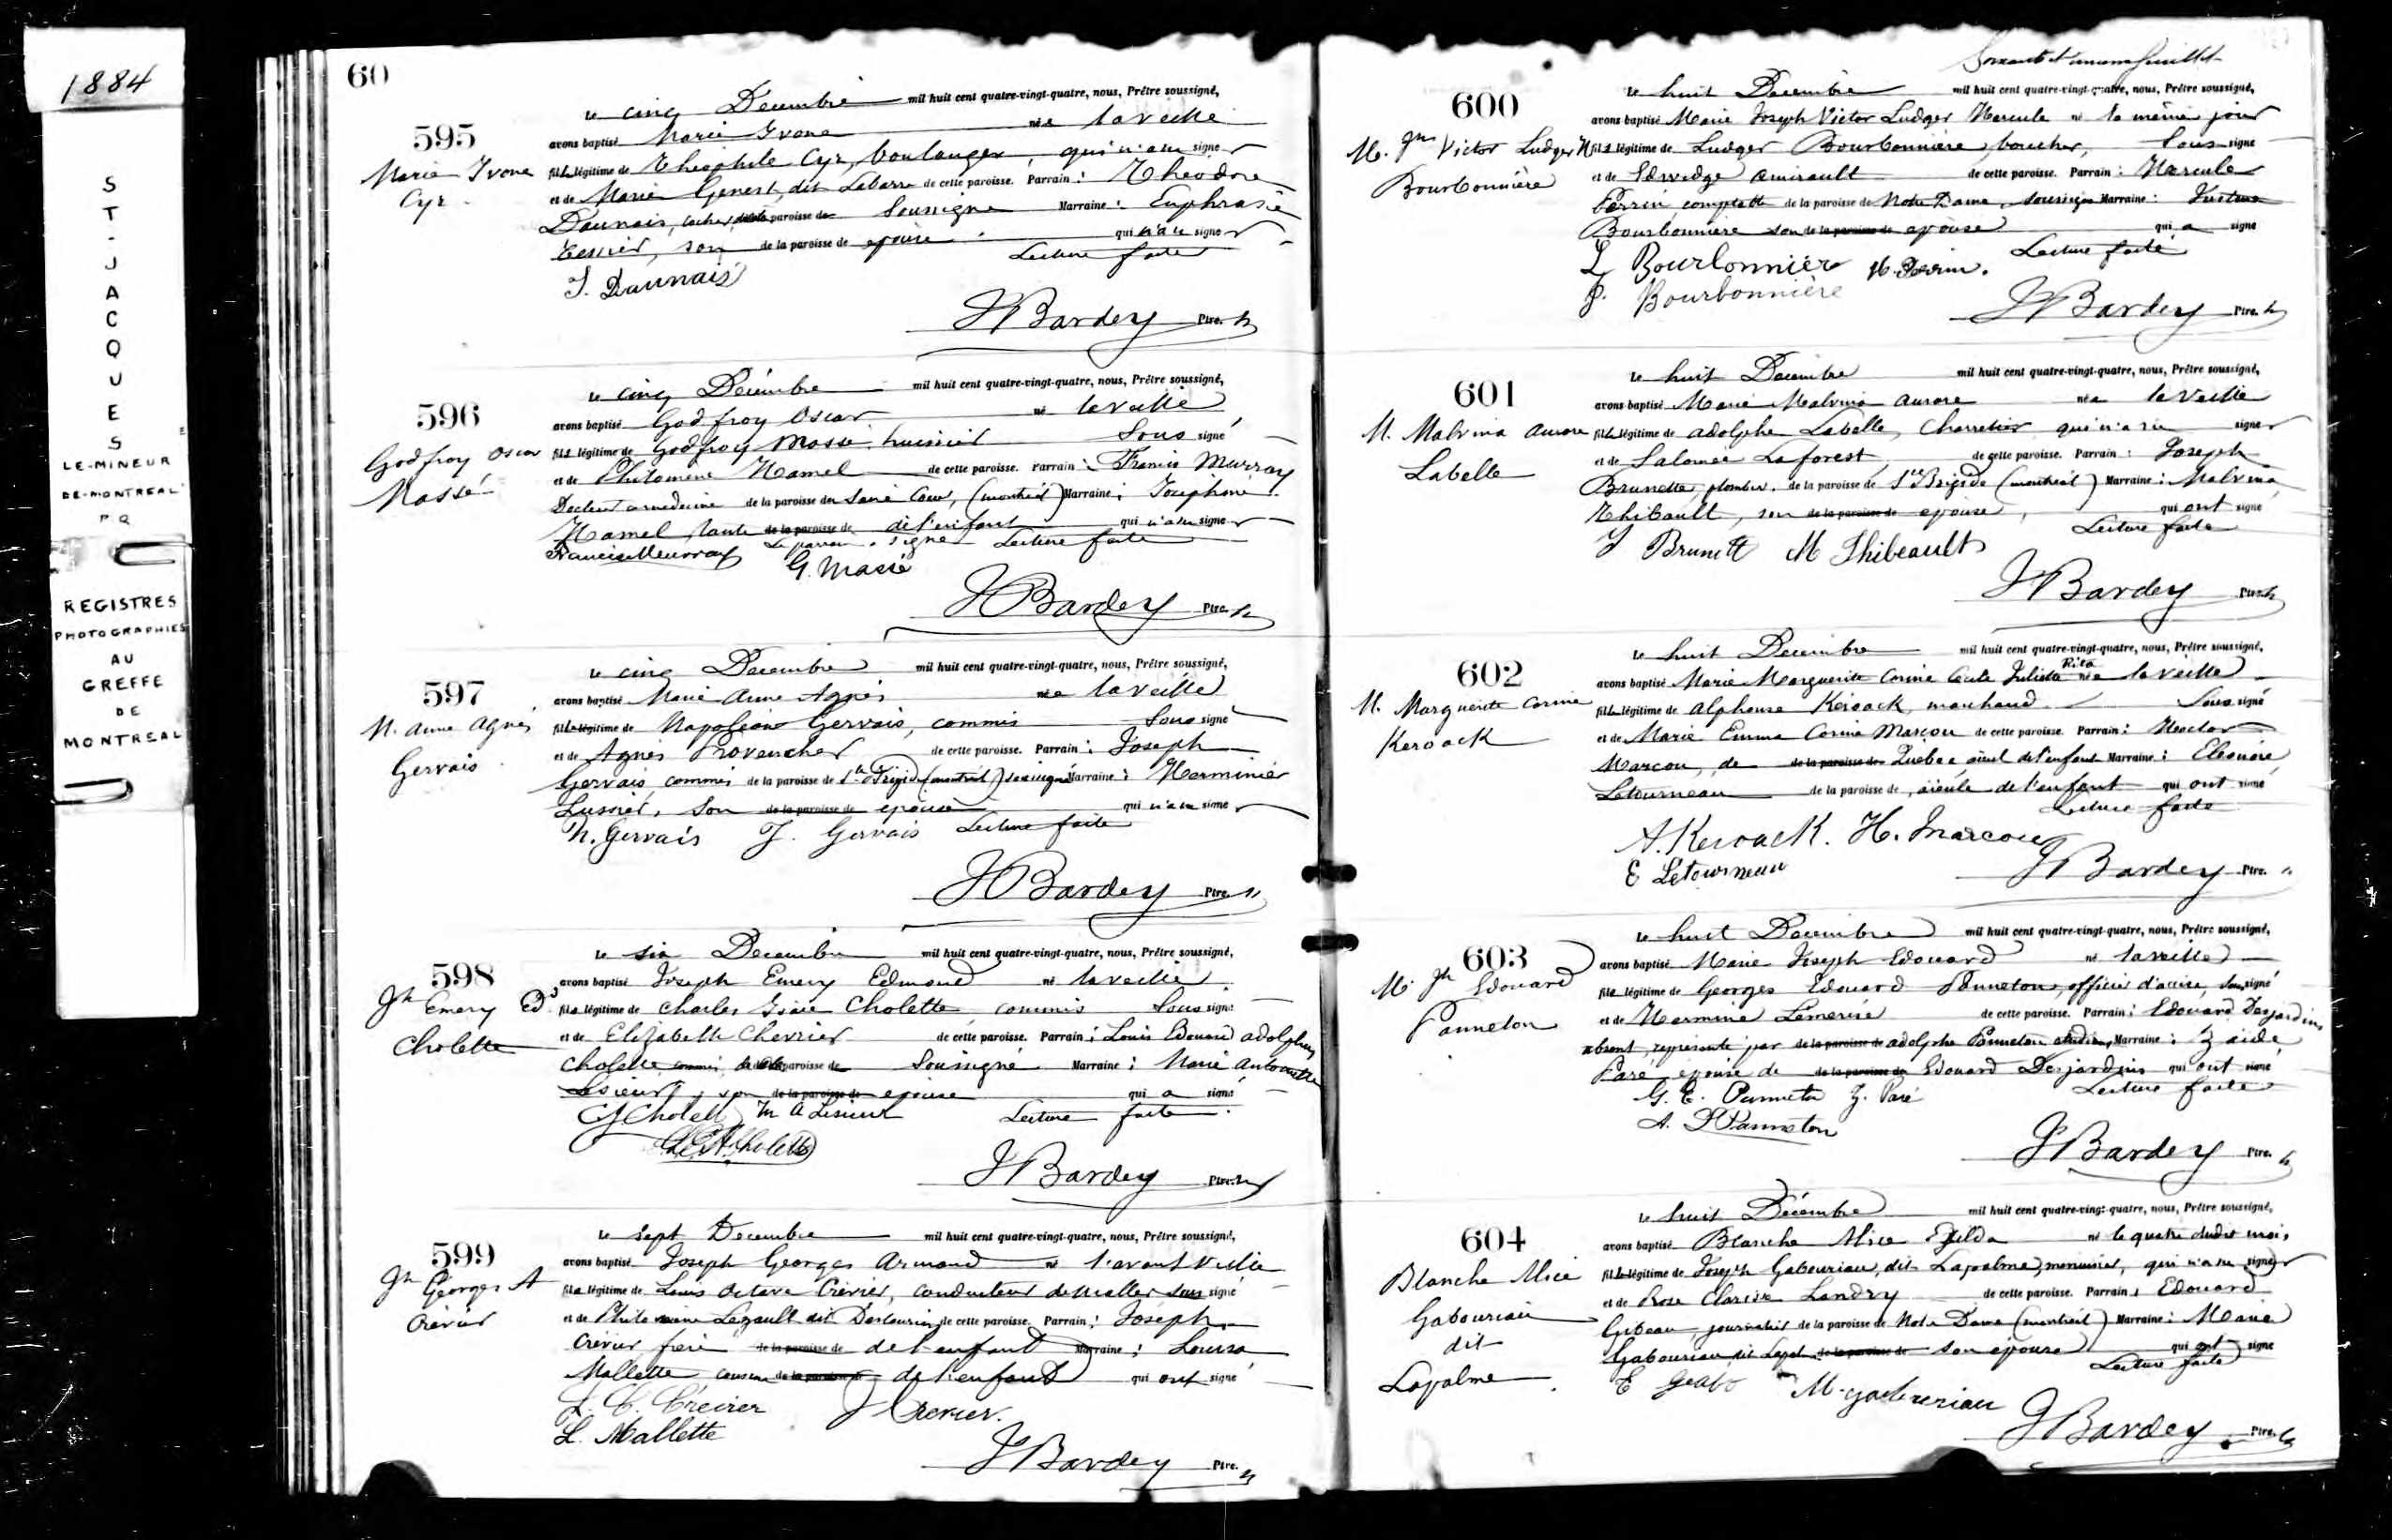 1884
ST-JACQUES
LE-MINEUR
DE-MONTREAL
P Q
REGISTRES
PHOTOGRAPHIES
AU
GREFFE
DE
MONTREAL
60
595
Marie Ivone
Cyr
Le cinq Décembre mil huit cent quatre-vingt-quatre, nous, Prêtre soussigné,
avons baptisé Marie Ivone née la veille
fille légitime de Théophile Cyr, boulanger, qui n'a su signer
et de Marie Genest dit Labarre de cette paroisse. Parrain : Théodore
Daunais, cocher, paroisse de Soussigné Marraine : Euphrasie
Tessier, son de la paroisse de épouse qui n'a su signer
Lecture faite
J. Daunais
J Bardey Ptre.
596
Godfroy Oscar
Massé
Le cinq Décembre mil huit cent quatre-vingt-quatre, nous, Prêtre soussigné,
avons baptisé Godfroy Oscar né la veille
fils légitime de Godfroy Massé huissier Sous signé
et de Philomène Hamel de cette paroisse. Parrain : Francis Murray
Docteur en médecine de la paroisse du Sacré Coeur, (Montréal) Marraine : Joséphine
Hamel tante de la paroisse de de l'enfant qui n'a su signer
Le parrain a signé Lecture faite
Francis Murray G. Massé
J Bardey Ptre.
597
M. Anne Agnès
Gervais
Le cinq Décembre mil huit cent quatre-vingt-quatre, nous, Prêtre soussigné,
avons baptisé Marie Anne Agnès née la veille
fille légitime de Napoléon Gervais, commis Sous signé
et de Agnès Provencher de cette paroisse. Parrain : Joseph
Gervais, commis de la paroisse de Ste Brigide (Montréal) soussigné Marraine : Herminie
Lussier, son de la paroisse de épouse qui n'a su signer
N. Gervais J. Gervais Lecture faite
J Bardey Ptre.
598
Jh Emery Ed
Cholette
Le six Décembre mil huit cent quatre-vingt-quatre, nous, Prêtre soussigné,
avons baptisé Joseph Emery Edmond né la veille
fils légitime de Charles Isaïe Cholette, commis Sous signé
et de Elizabeth Chevrier de cette paroisse. Parrain : Louis Edouard Adolphus
Cholette commis paroisse de Soussigné Marraine : Marie Antoinette
Lesieur, son de la paroisse de épouse qui a signé
C J Cholette M A Lesieur Lecture faite
L E A Cholette
J Bardey Ptre.
599
Jh Georges A
Crevier
Le sept Décembre mil huit cent quatre-vingt-quatre, nous, Prêtre soussigné,
avons baptisé Joseph Georges Armand né l'avant veille
fils légitime de Louis Octave Crevier, conducteur de malles Sous signé
et de Philomène Legault dit Deslauriers de cette paroisse. Parrain : Joseph
Crevier frère de la paroisse de de l'enfant Marraine : Louisa
Mallette cousine de la paroisse de de l'enfant qui ont signé
L. O. Crevier J Crevier.
L. Mallette
J Bardey Ptre.
Soixante et unième feuillet
600
M. Jh Victor Ludger H
Bourbonnière
Le huit Décembre mil huit cent quatre-vingt-quatre, nous, Prêtre soussigné,
avons baptisé Marie Joseph Victor Ludger Hercule né le même jour
fils légitime de Ludger Bourbonnière, boucher, Sous signé
et de Edwidge Amirault de cette paroisse. Parrain : Hercule
Perrin, comptable de la paroisse de Notre Dame, soussigné Marraine : Justine
Bourbonnière son de la paroisse de épouse qui a signé
Lecture faite
L Bourbonnière H. Perrin.
J. Bourbonnière
J Bardey Ptre.
601
M. Malvina Aurore
Labelle
Le huit Décembre mil huit cent quatre-vingt-quatre, nous, Prêtre soussigné,
avons baptisé Marie Malvina Aurore née la veille
fille légitime de Adolphe Labelle, Charretier qui n'a su signer
et de Salomée Laforest, de cette paroisse. Parrain : Joseph
Brunette, plombier, de la paroisse de Ste Brigide (Montréal) Marraine : Malvina
Thibault, son de la paroisse de épouse, qui ont signé
Lecture faite
J Brunett M Thibeault
J Bardey Ptre.
602
M. Marguerite Corine
Keroack
Le huit Décembre mil huit cent quatre-vingt-quatre, nous, Prêtre soussigné,
avons baptisé Marie Marguerite Corine Cécile Julieta Rita née la veille
fille légitime de Alphonse Keroack, marchand Sous signé
et de Marie Emma Corine Marcou de cette paroisse. Parrain : Hector
Marcou, de de la paroisse de Québec aïeul de l'enfant Marraine : Eléonore
Letourneau de la paroisse de, aïeule de l'enfant qui ont signé
Lecture faite
A. Keroack. H. Marcou
E Letourneau
J Bardey Ptre.
603
M. Jh Edouard
Panneton
Le huit Décembre mil huit cent quatre-vingt-quatre, nous, Prêtre soussigné,
avons baptisé Marie Joseph Edouard né la veille
fils légitime de Georges Edouard Panneton, officier d'accise, Soussigné
et de Hermine Lemerise de cette paroisse. Parrain : Edouard Desjardins
absent, représenté par de la paroisse de Adolphe Panneton étudiant, Marraine : Zaïde
Paré épouse de de la paroisse de Edouard Desjardins qui ont signé
Lecture faite
G. E. Panneton Z. Paré
A. P Panneton
J Bardey Ptre.
604
Blanche Alice
Gabouriau
dit
Lapalme
Le huit Décembre mil huit cent quatre-vingt-quatre, nous, Prêtre soussigné,
avons baptisé Blanche Alice Exilda né le quatre dudit mois
fille légitime de Joseph Gabouriau, dit Lapalme, menuisier, qui n'a su signer
et de Rose Clarisse Landry de cette paroisse. Parrain : Edouard
Gibeau, journalier de la paroisse de Notre Dame (Montréal) Marraine : Marie
Gabouriau dit Lapal. de la paroisse de son épouse qui ont signé
Lecture faite
E M. Gabouriau
J Bardey Ptre.